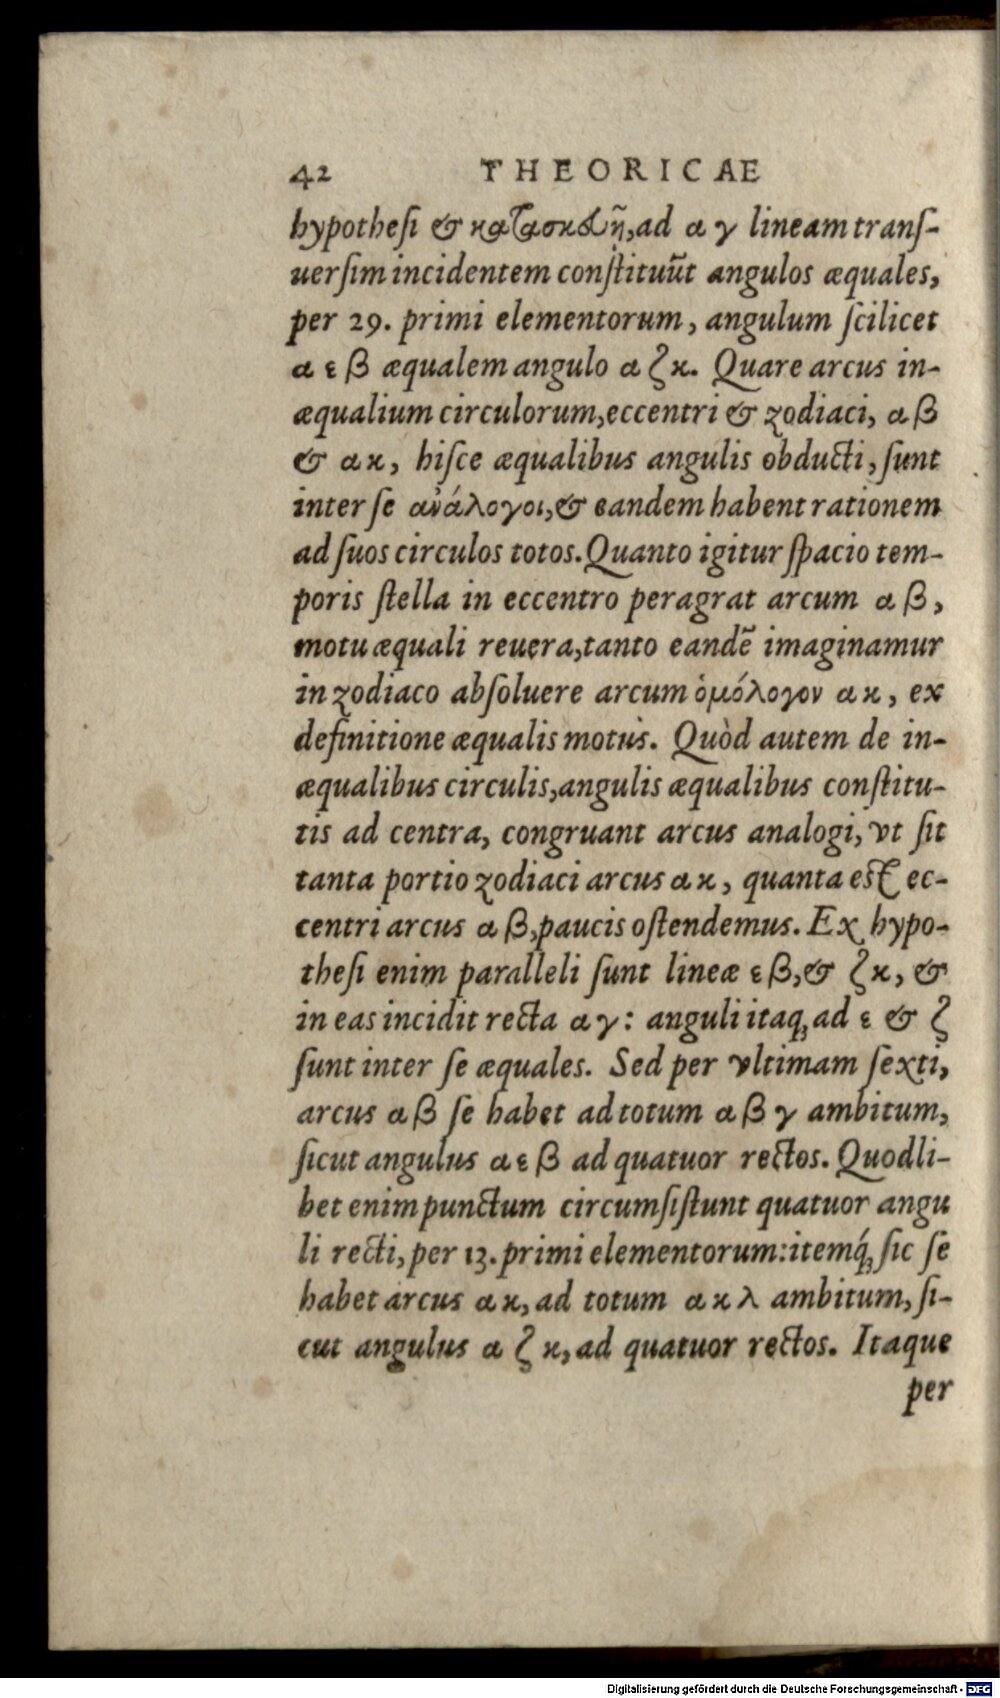 42 THEORICAE
hypothesi & κατασκευῇ, ad α γ lineam transſ-
uerſim incidentem conſtituūt angulos æquales,
per 29. primi elementorum, angulum ſcilicet
α ε β æqualem angulo α ζ κ. Quare arcus in-
æqualium circulorum, eccentri & zodiaci, α β
& α κ, hiſce æqualibus angulis obducti, ſunt
inter ſe ἀνάλογοι, & eandem habent rationem
ad ſuos circulos totos. Quanto igitur ſpacio tem-
poris ſtella in eccentro peragrat arcum α β,
motu æquali reuera, tanto eandē imaginamur
in zodiaco abſoluere arcum ὁμόλογον α κ, ex
definitione æqualis motus. Quòd autem de in-
æqualibus circulis, angulis æqualibus conſtitu-
tis ad centra, congruant arcus analogi, vt ſit
tanta portio zodiaci arcus α κ, quanta eſt ec-
centri arcus α β, paucis oſtendemus. Ex hypo-
theſi enim paralleli ſunt lineæ ε β, & ζ κ, &
in eas incidit recta α γ: anguli itaq; ad ε & ζ
ſunt inter ſe æquales. Sed per vltimam ſexti,
arcus α β ſe habet ad totum α β γ ambitum,
ſicut angulus α ε β ad quatuor rectos. Quodli-
bet enim punctum circumſiſtunt quatuor angu
li recti, per 13. primi elementorum: itemq́; ſic ſe
habet arcus α κ, ad totum α κ λ ambitum, ſi-
cut angulus α ζ κ, ad quatuor rectos. Itaque
per
Digitalisierung gefördert durch die Deutsche Forschungsgemeinschaft - DFG